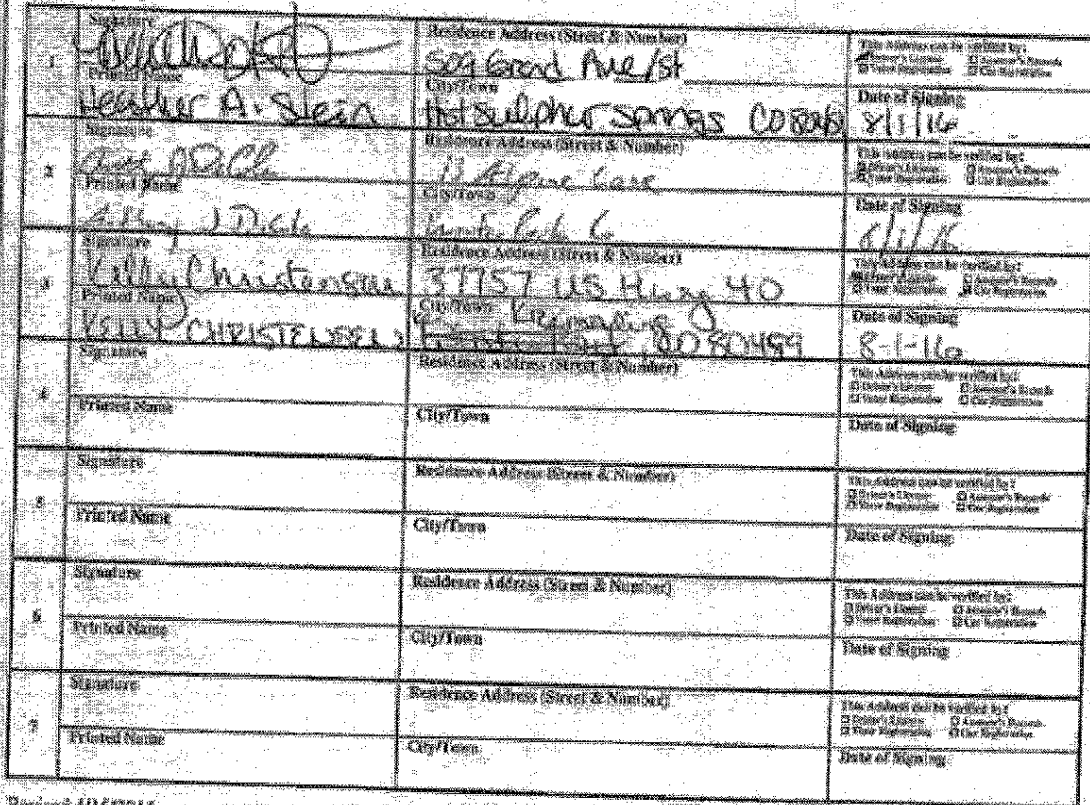 Signature Residence Address (Street & Number) This Address can be verified by:
Driver's License Assessor's Records
1 509 Grand Ave/St Voter Registration Car Registration
Printed Name City/Town Date of Signing
Heather A. Stein Hot Sulphur Springs CO 8/1/16
Signature Residence Address (Street & Number) This Address can be verified by:
Driver's License Assessor's Records
2 Alpine Lane Voter Registration Car Registration
Printed Name City/Town Date of Signing
J Park Co 8/1/16
Signature Residence Address (Street & Number) This Address can be verified by:
Driver's License Assessor's Records
3 Kelly Christensen 37757 US Hwy 40 Voter Registration Car Registration
Printed Name City/Town Kremmling Date of Signing
Kelly CHRISTENSEN CO 80459 8-1-16
Signature Residence Address (Street & Number) This Address can be verified by:
Driver's License Assessor's Records
4 Voter Registration Car Registration
Printed Name City/Town Date of Signing
Signature Residence Address (Street & Number) This Address can be verified by:
Driver's License Assessor's Records
5 Voter Registration Car Registration
Printed Name City/Town Date of Signing
Signature Residence Address (Street & Number) This Address can be verified by:
Driver's License Assessor's Records
6 Voter Registration Car Registration
Printed Name City/Town Date of Signing
Signature Residence Address (Street & Number) This Address can be verified by:
Driver's License Assessor's Records
7 Voter Registration Car Registration
Printed Name City/Town Date of Signing